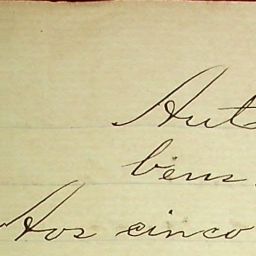 Aut
bens
Aos cinco